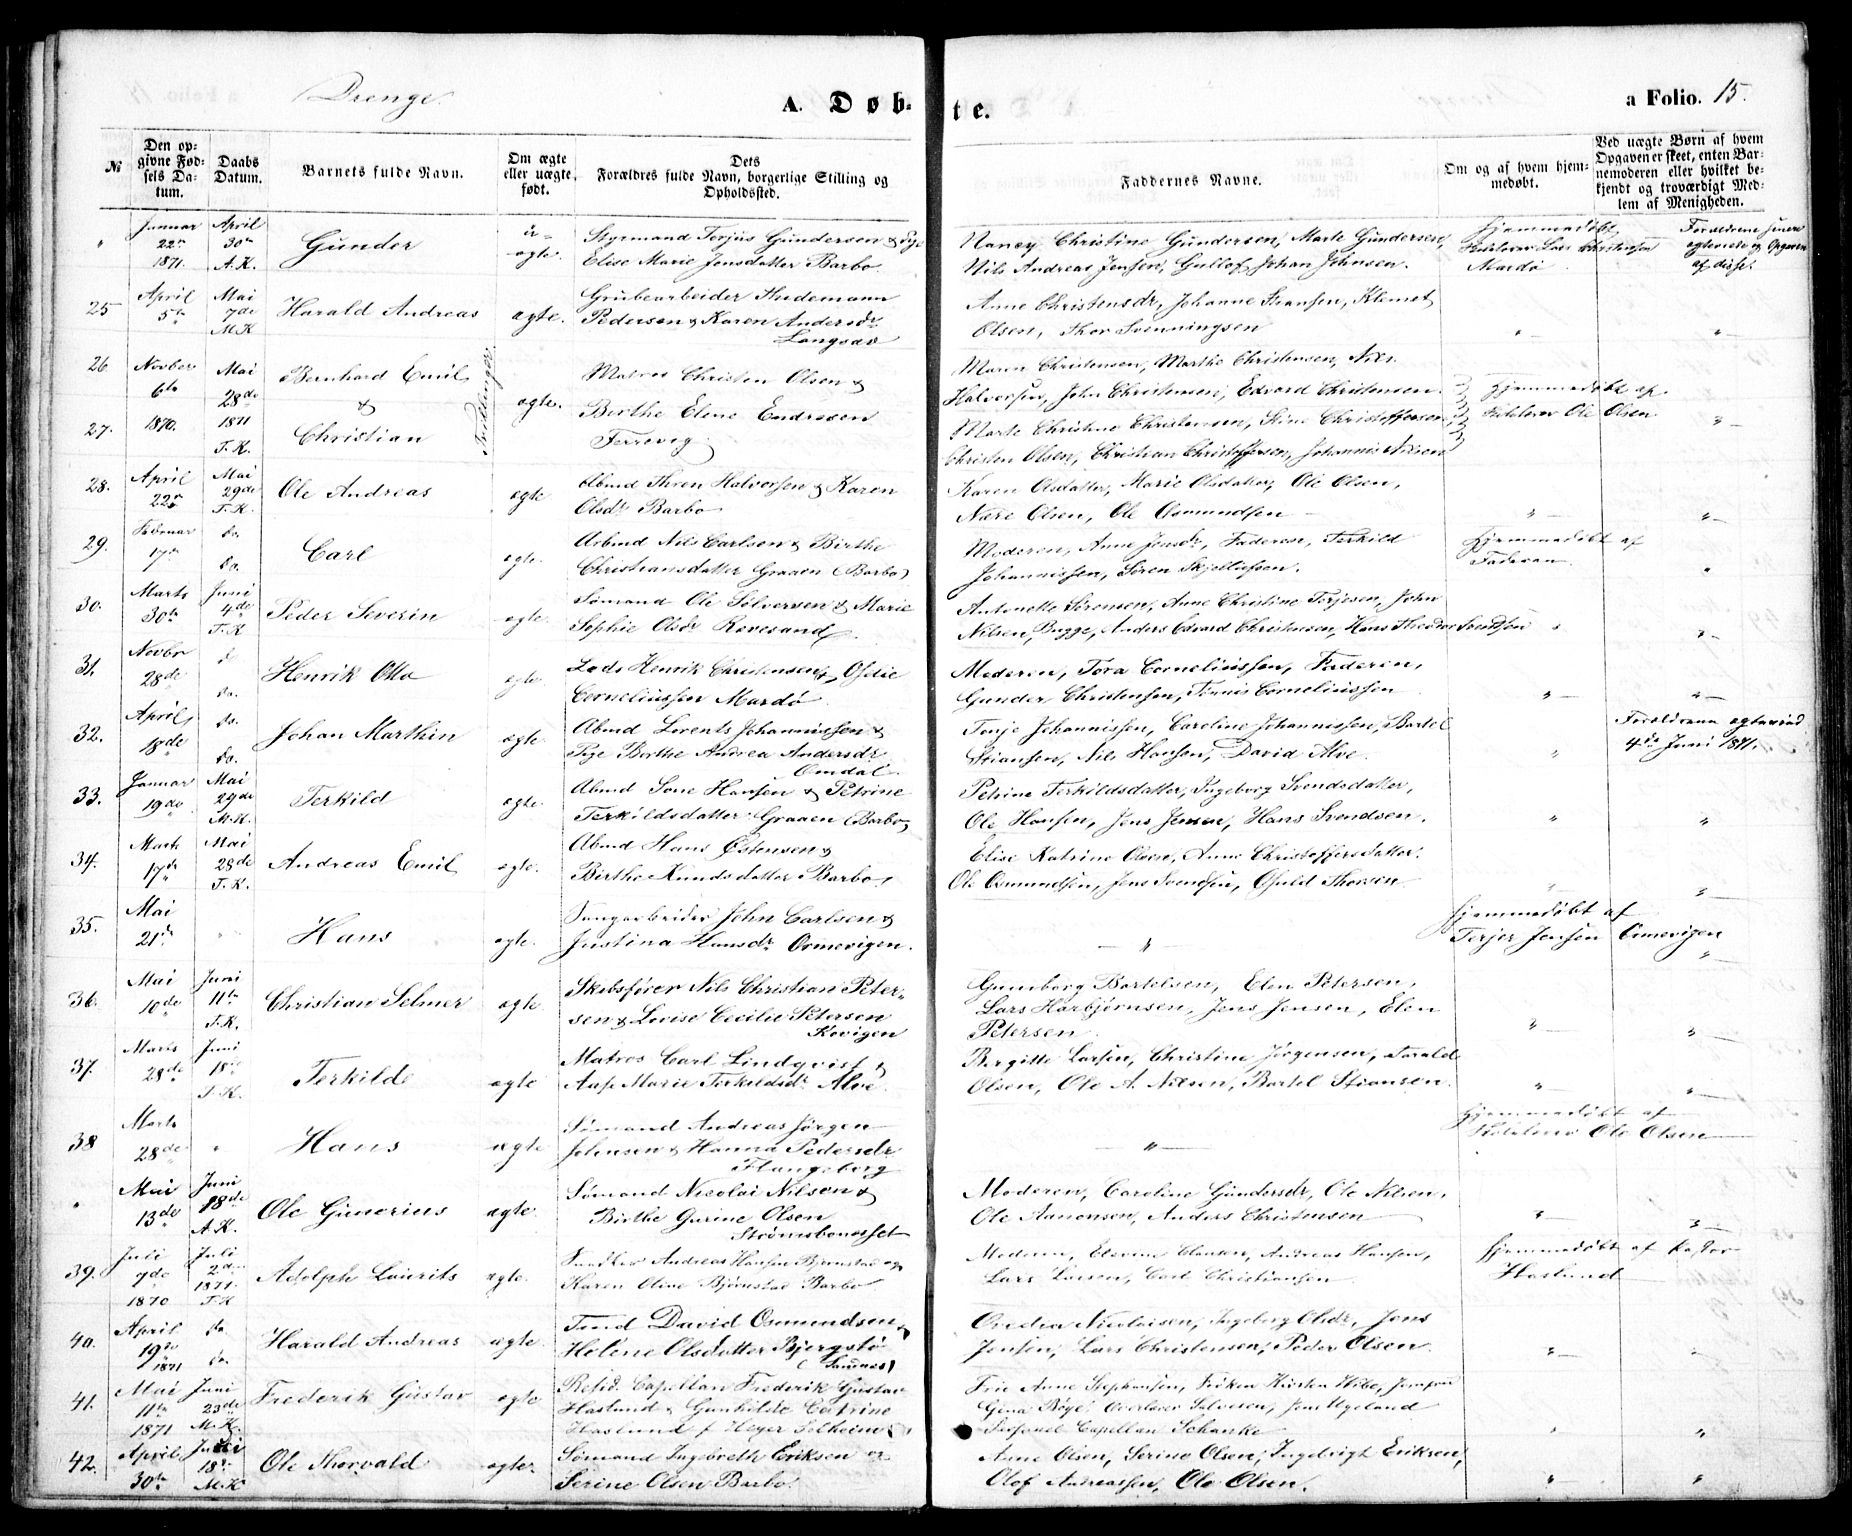 Drenge.
A. Døb-
te.
a Folio. 15.
№
Den op-
givne Fød-
sels Da-
tum.
Daabs
Datum.
Barnets fulde Navn.
Om ægte
eller uægte
født.
Dets
Forældres fulde Navn, borgerlige Stilling og
Opholdssted.
Faddernes Navne.
Om og af hvem hjem-
medøbt.
Ved uægte Børn af hvem
Opgaven er skeet, enten Bar-
nemoderen eller hvilket be-
kjendt og troværdigt Med-
lem af Menigheden.
" Januar 22de 1871. April 30te A.K.
Gunder
u-
ægte.
Styrmand Terjus Gundersen &
Elise Marie Jensdatter Barbo.
Nancy Christine Gundersen, Marte Gundersen,
Nils Andreas Jensen, Gullof Johan Johnsen.
Hjemmedøbt
Lars Christensen
Mardø
Forældrene senere
ægteviede og Opgaven
af disse.
25 April 5te Mai 7de M.K.
Harald Andreas
ægte.
Grubearbeider Thidemann
Pedersen & Karen Andersdr
Langsæv
Anne Christensdr, Johanne Hansen, Klemet
Olsen, Thor Svenningsen
26 Novber 6te 1870. Mai 28de 1871 T.K.
Bernhard Emil
&
27. Christian
Tvillinger
ægte.
Matros Christen Olsen &
Birthe Eline Endresen
Terrevig
Maren Christensen, Marthe Christensen, Nils
Halvorsen, John Christensen, Edvard Christensen.
Marte Christine Christensen, Stine Christoffersen,
Christen Olsen, Christian Christoffersen, Johannis Nilsen
Hjemmedøbt af
Skolelærer Ole Olsen
28. April 22de Mai 29de T.K.
Ole Andreas
ægte
Abmd Thron Halvorsen & Karen
Olsdr Barbo
Karen Olsdatter, Marie Olsdatter, Ole Olsen,
Nære Olsen, Ole Osmundsen
29. Februar 17de do. do.
Carl
ægte.
Arbmd Nils Carlsen & Birthe
Christiansdatter Graaen (Barbo)
Moderen, Anne Jensdr, Faderen, Terkild
Johannissen, Søren Skjellufsen.
Hjemmedøbt af
Faderen
30. Marts 30te Juni 4de T.K
Peder Severin
ægte.
Sømand Ole Sølversen & Marie
Sophie Olsdr Revesand
Antonette Sørensen, Anne Christine Terjesen, John
Nilsen, Bugge, Anders Edvard Christensen, Hans Theodor Svendsen
31. Novbr 28de d. do.
Henrik Otto
ægte
Lods Henrik Christensen & Ofelie
Corneliussen Mardø
Moderen, Tora Corneliussen, Faderen,
Gunder Christensen, Tønnis Corneliussen
32. April 18de do. do.
Johan Marthin
ægte
Abmd Lorents Johannissen &
Pige Birthe Andrea Andersdr
Omdal.
Tonje Johannissen, Caroline Johannissen, Bartel
Stiansen, Nils Hansen, David Alve.
Forældrene ægteviede
4de Juni 1871.
33. Januar 19de Mai 29de M.K.
Terkild
ægte
Abmd Sone Hansen & Petrine
Terkildsdatter Graaen (Barbo)
Petrine Terkildsdatter, Ingeborg Svendsdatter,
Ole Hansen, Jens Jensen, Hans Svendsen.
34. Marts 17de Mai 28de T.K.
Andreas Emil
ægte.
Abmd Hans Østensen &
Birthe Knudsdatter Barbo
Elise Katrine Olsen, Anne Christoffersdatter.
Ole Osmundsen, Jens Svendsen, Osuld Thorsen
35. Mai 21de "
Hans
ægte.
Tangarbeider John Carlsen &
Justina Hansdr Ormevigen.
"
Hjemmedøbt af
Terjer Jensen Ormevigen
36. Mai 10de Juni 11te T.K.
Christian Selmer
ægte
Skibsfører Nils Christian Peter-
sen & Lovise Cecilie Petersen
Kovigen
Gunnborg Bartelsen, Elen Petersen,
Lars Harbjørnsen, Jens Jensen, Elen
Petersen
37. Marts 28de Juni 18de T.K.
Terkilde
ægte
Matros Carl Lindqvist &
Aase Marie Terkildsdr Alve
Birgitte Larsen, Christine Jørgensen, Harald
Olsen, Ole A. Nilsen, Bartel Stiansen.
38 Marts 28de "
Hans
ægte
Sømand Andreas Jørgen
Johnsen & Hanna Pedersdr
Flangeborg
"
Hjemmedøbt af
Skolelærer Ole Olsen
" Mai 13de Juni 18de A.K.
Ole Gunerius
ægte
Sømand Nicolai Nilsen &
Birthe Gurine Olsen
Strømsbuaasset
Moderen, Caroline Gundersdr, Ole Nilsen,
Ole Aanonsen, Anders Christensen
39. Juli 7de 1870 Juli 2den 1871. T.K
Adolph Laurits
ægte.
Snedker Andreas Hansen Bjørnstad og
Karen Oline Bjørnstad Barbo
Moderen, Elevine Clausen, Andreas Hansen,
Lars Larsen, Carl Christiansen
Hjemmedøbt af Pastor
Haslund
40. April 19de 1871 do do.
Harald Andreas
ægte.
Tmd David Osmundsen &
Helene Olsdatter Bjergstø
(Sandnes)
Oredia Nicolaisen, Ingeborg Olsdr, Jens
Jensen, Lars Christensen, Peder Olsen.
41. Mai 11te 1871 Juni 23de M.K.
Frederik Gustav
ægte
Resid. Capellan Frederik Gustav
Haslund & Gunhilde Catrine
Haslund f. Heyer Selheim
Frue Anne Stephansen, Frøken Kirsten Wibe, Jomfru
Gina Bugge, Overlærer Salvesen, Jens Ugeland
Personel Capellan Schanke
42. April 30te Juli 18de M.K
Ole Thorvald
ægte.
Sømand Ingebreth Eriksen og
Serine Olsen Barbo.
Anne Olsen, Serine Olsen, Ingebrigt Eriksen,
Olof Andreassen, Ole Olsen.